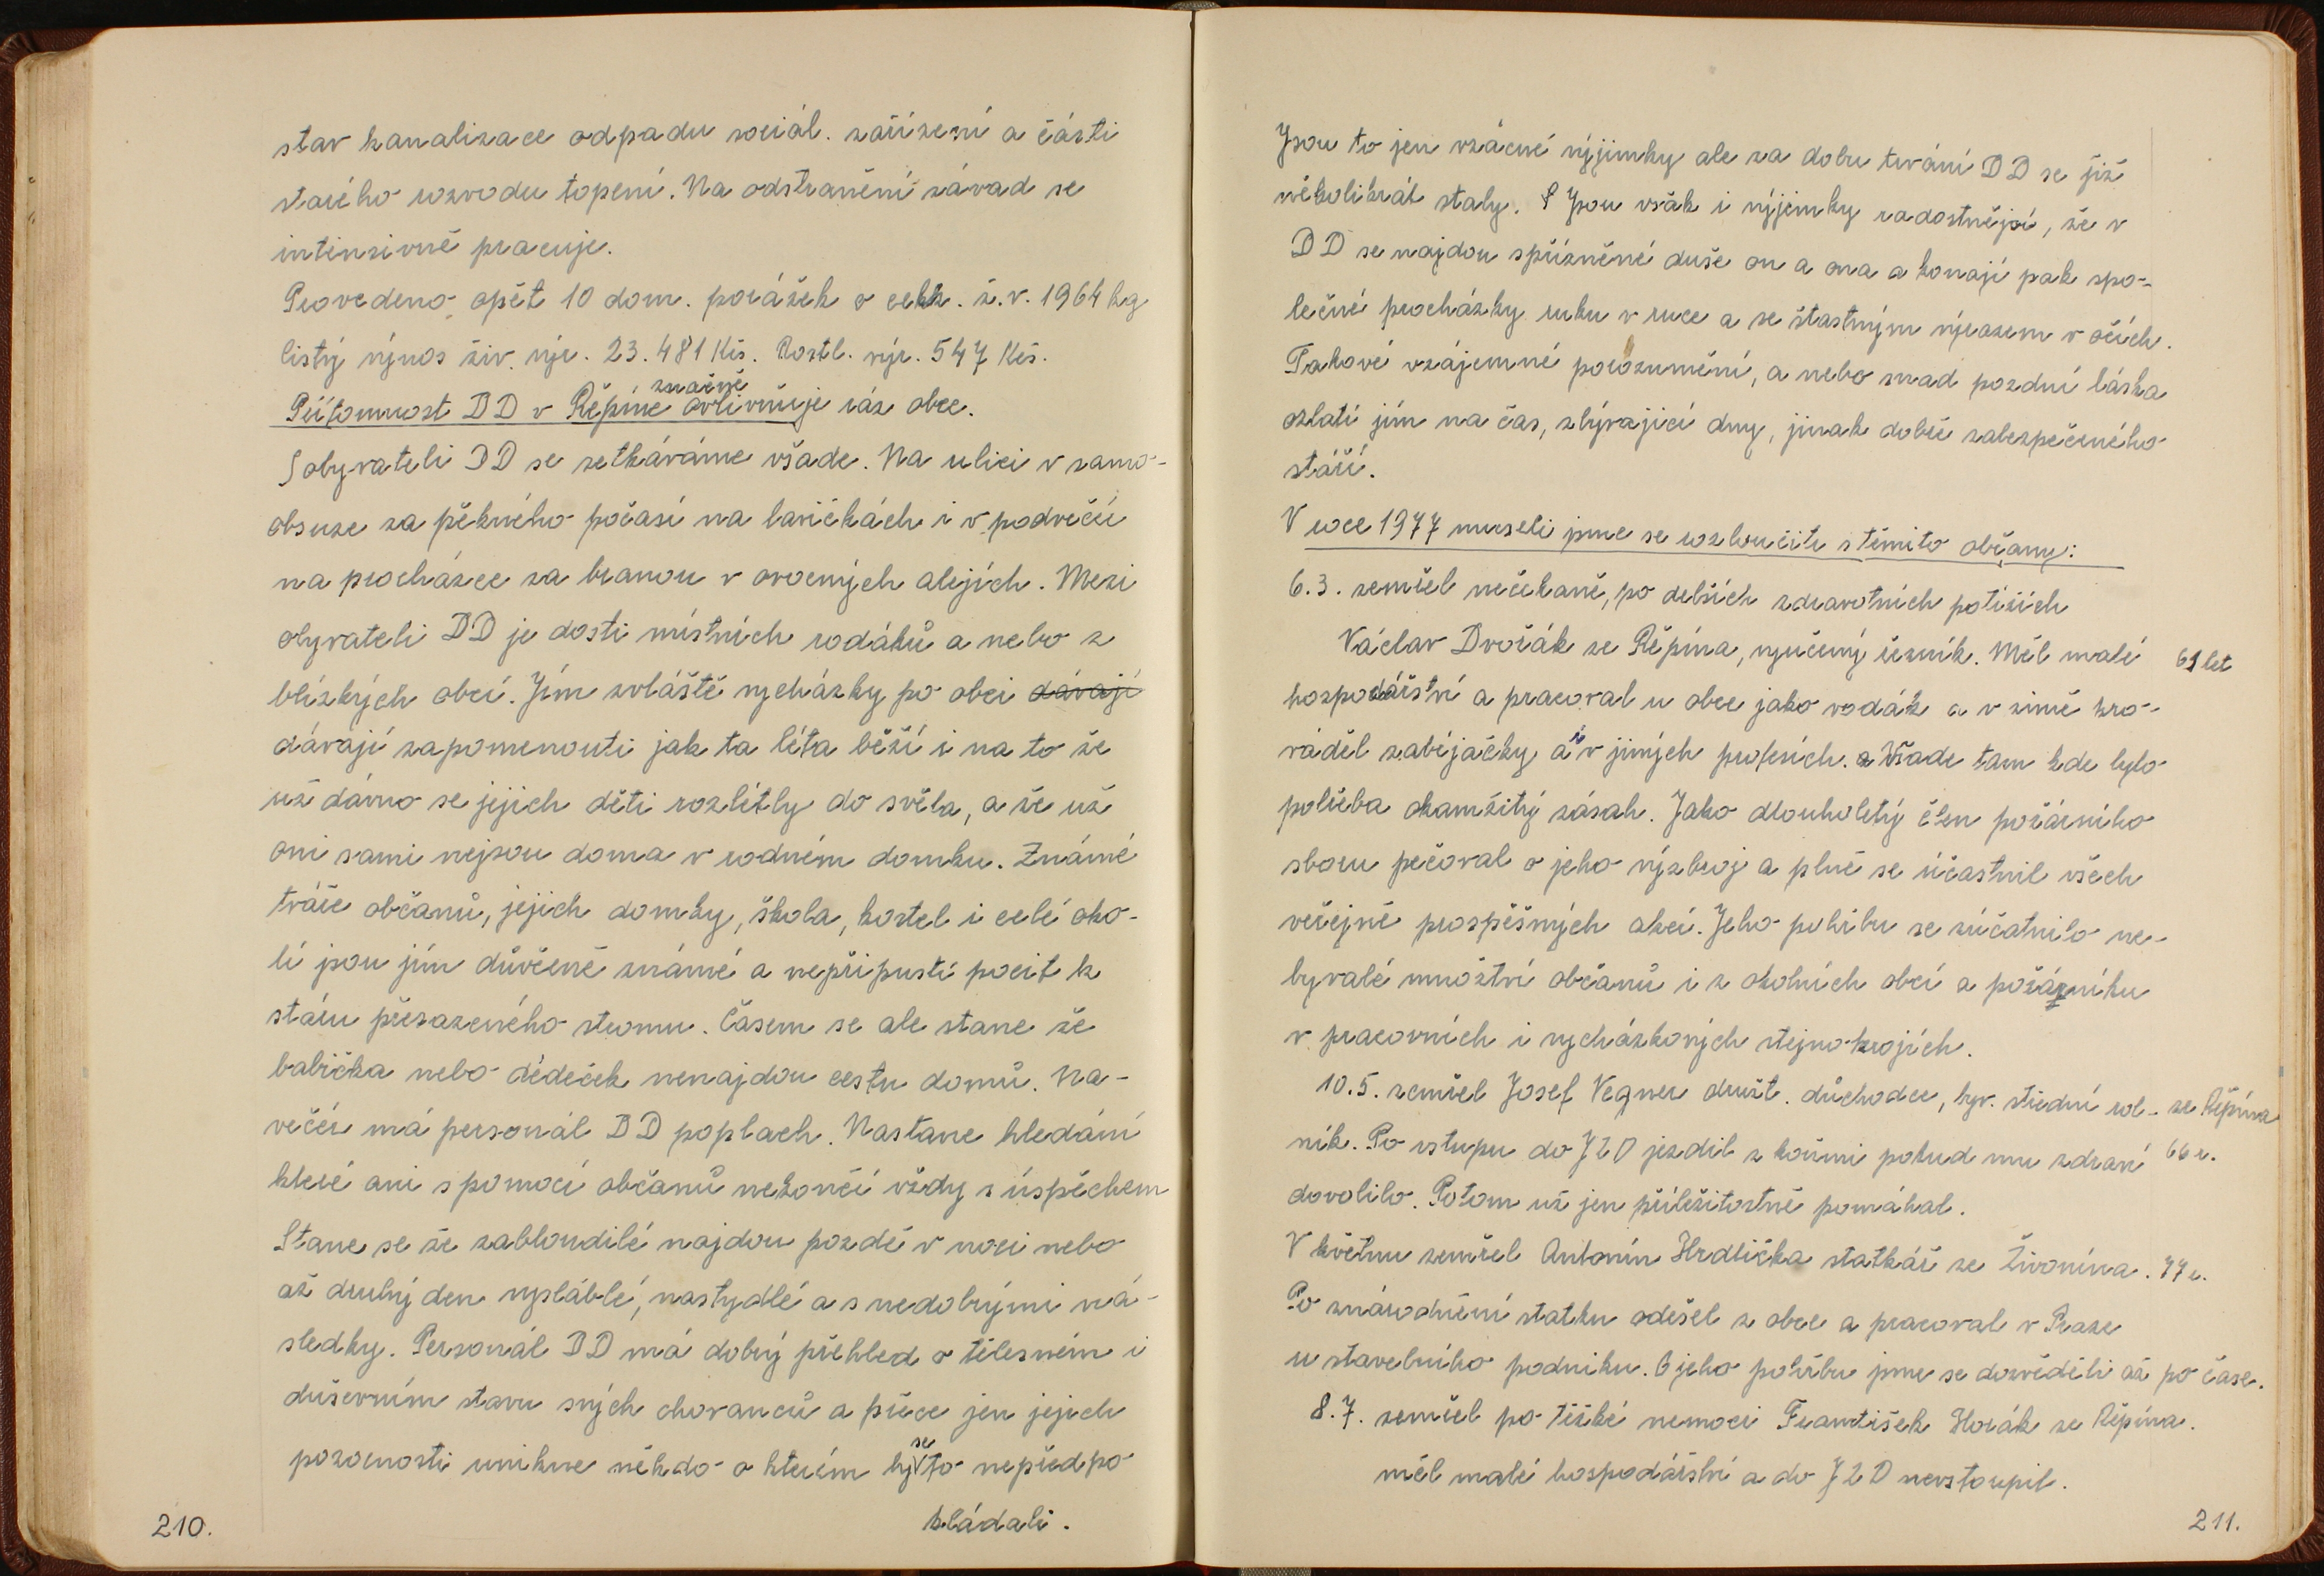 stav kanalizace odpadu sociál. zařízení a části
starého rozvodu topení. Na odstranění závad se
intensivně pracuje.
Provedeno opět 10 dom. porážek o celk. ž.v. 1964 kg
čistý výnos živ. výr. 23.481 Kčs. Rostl. výr. 547 Kčs.
Přítomnost DD v Řepíně značně ovlivňuje ráz obce.
S obyvateli DD se setkáváme všade. Na ulici v samo-
obsuze za pěkného počasí na lavičkách i v podvečír
na procházce za branou v ovocných alejích. Mezi
obyvateli DD je dosti místních rodáků a nebo z
blízkých obcí. Jím zvláště vycházky po obci dávají
dávají zapomenouti jak ta léta běží i na to že
už dávno se jejich děti rozlétly do světa, a že už
oni sami nejsou doma v rodném domku. Známé
tváře občanů, jejich domky, škola, kostel i celé oko-
lí jsou jím důvěrně známé a nepřipustí pocit k
stáru přesazeného stromu. Časem se ale stane že
babička nebo dědeček nenajdou cestu domů. Na-
večír má personál DD poplach. Nastane hledání
které ani s pomocí občanů nekončí vždy s úspěchem
Stane se že zabloudilé najdou pozdě v noci nebo
až druhý den vysláblé, nastydlé a s nedobrými ná-
sledky. Personál DD má dobrý přehled o tělesném i
duševním stavu svých chovanců a přece jen jejich
pozornosti unikne někdo o kterém by se to nepředpo
kládali.
210.
Jsou to jen vzácné výjimky ale za dobu trvání DD se již
několikrát staly. Jsou však i výjimky radostnější, že v
DD se najdou spřízněné duše on a ona a konají pak spo-
lečné procházky ruku v ruce a se štastným výrazem v očích.
Takové vzájemné porozumění, a nebo snad pozdní láska
ozlatí jím na čas, zbývající dny, jinak dobře zabezpečeného
stáří.
V roce 1977 museli jsme se rozloučiti s těmito občany:
6.3. zemřel nečekaně, po delších zdravotních potížích
Václav Dvořák ze Řepína, vyučený řezník. Měl malé 61 let
hospodářství a pracoval u obce jako vodák a v zimě pro-
váděl zabíjačky a i v jiných profesích. Všade tam kde bylo
potřeba okamžitý zásah. Jako dlouholetý člen požárního
sboru pečoval o jeho výzbroj a plně se účastnil všech
veřejně prospěšných akcí. Jeho pohřbu se zúčatnilo ne-
byvalé množtví občanů i z okolních obcí a požárníku
v pracovních i vycházkových stejnokrojích.
10.5. zemřel Josef Vegner družt. důchodce, byv. střední rol- ze Řepína
ník. Po vstupu do JZD jezdil s koňmi pokud mu zdraví 66 r.
dovolilo. Potom už jen příležitostně pomáhal.
V květnu zemřel Antonín Hrdlička statkář ze Živonína. 77 r.
Po znárodnění statku odešel z obce a pracoval v Praze
u stavebního podniku. O jeho pohřbu jsme se dověděli až po čase.
8.7. zemřel po těžké nemoci František Horák ze Řepína.
měl malé hospodářství a do JZD nevstoupil.
211.